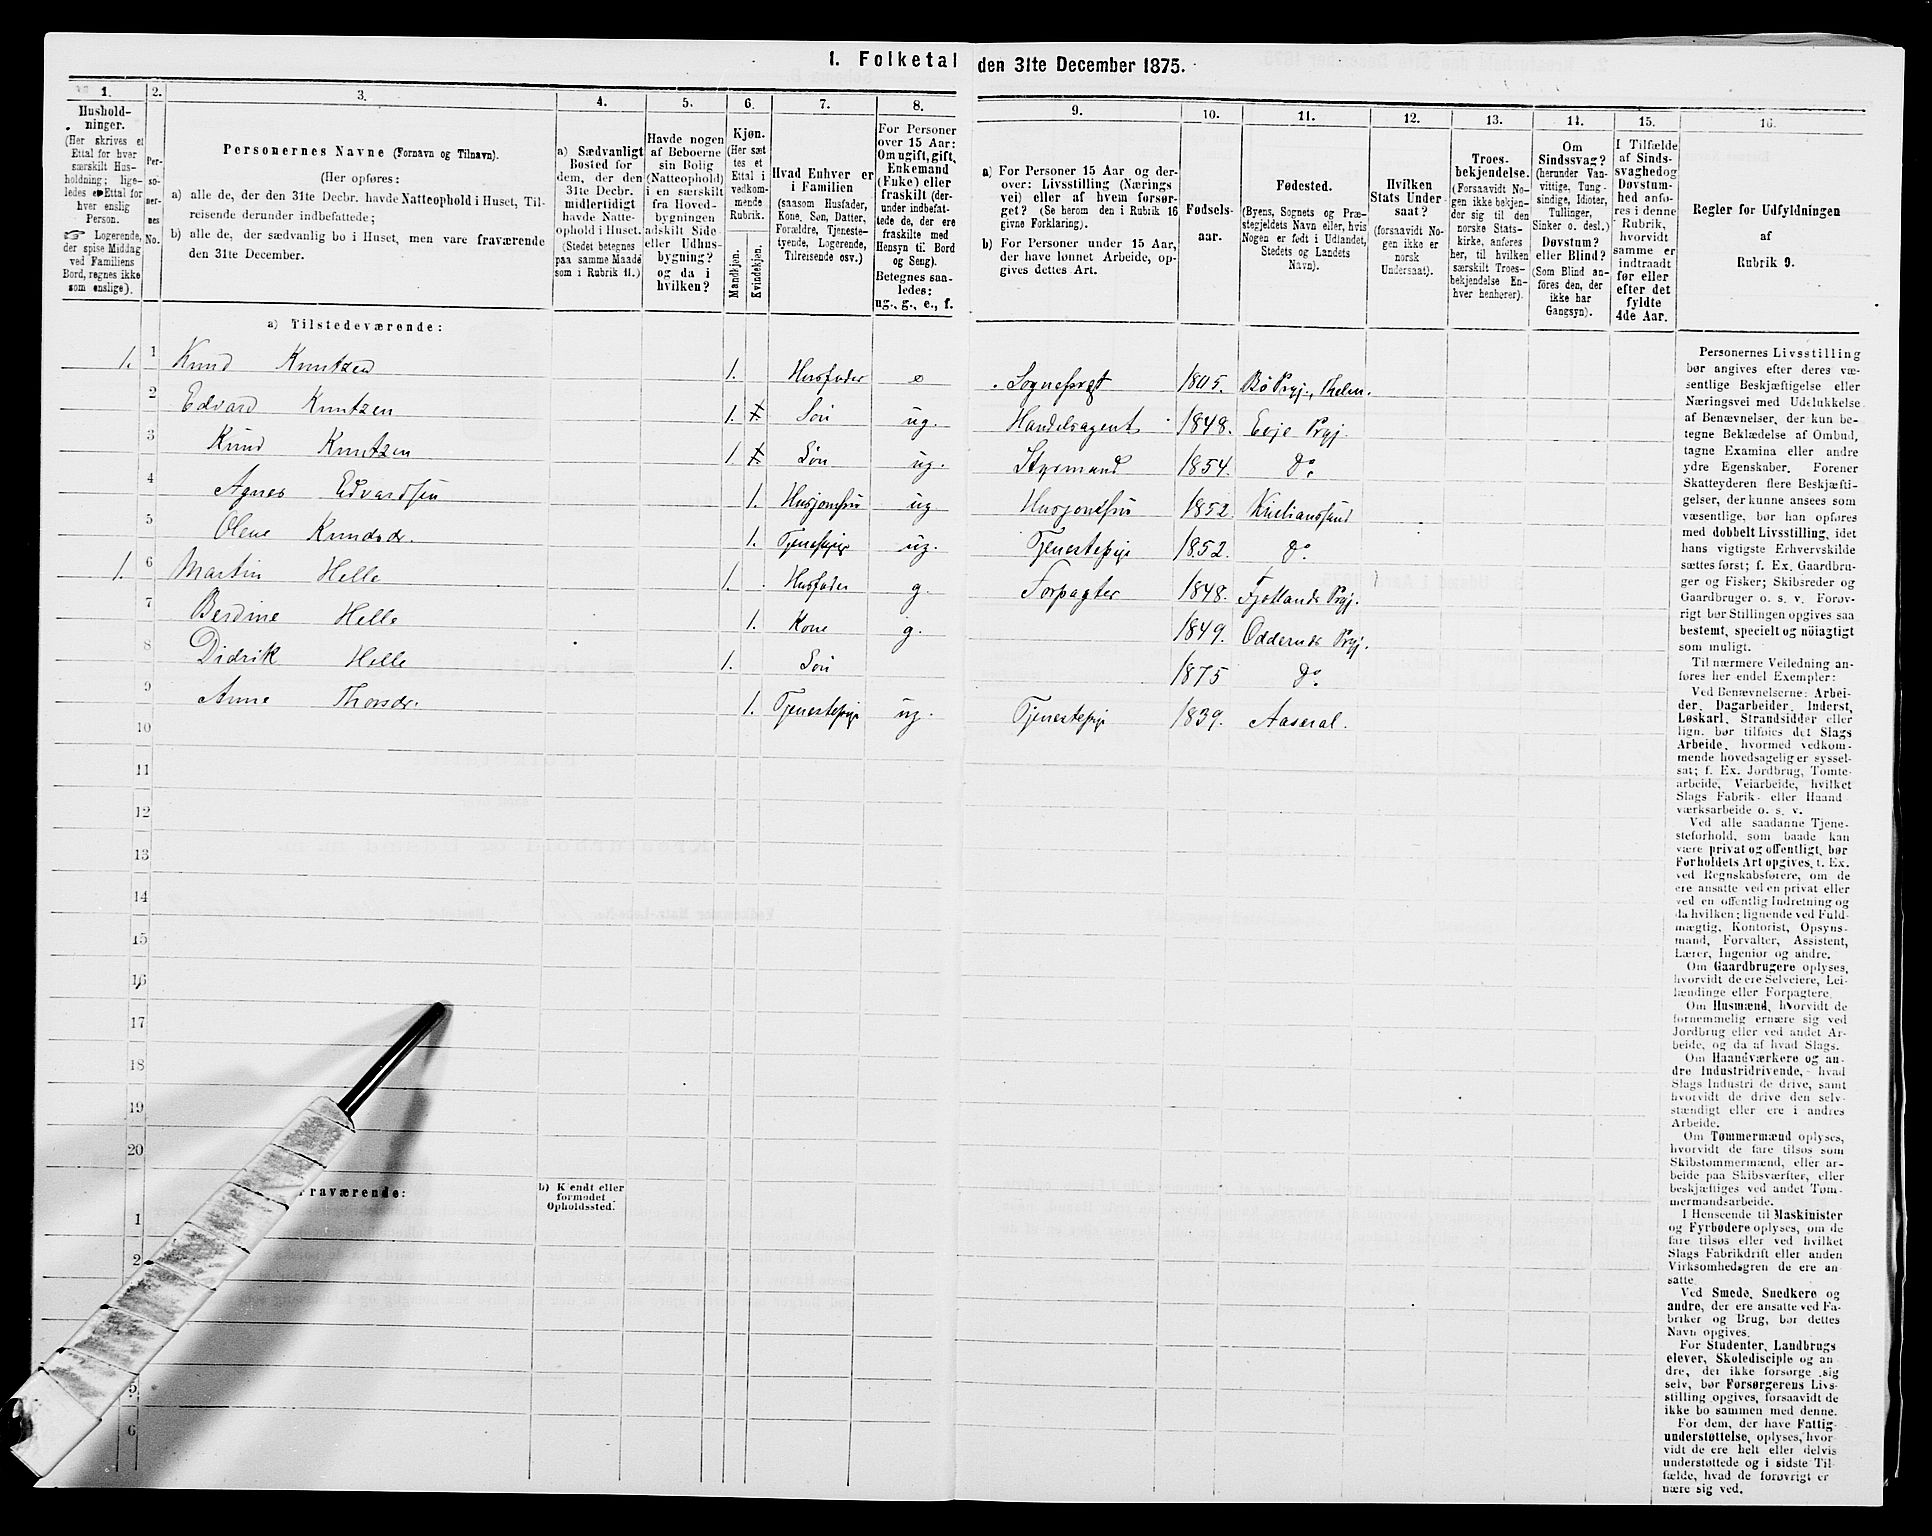 1. Folketal den 31te December 1875.
1. 2. 3. 4. 5. 6. 7. 8. 9. 10. 11. 12. 13. 14. 15. 16.
Hushold-
ninger.
(Her skrives et
Ettal for hver
særskilt Hus-
holdning; lige-
ledes et Ettal for
hver enslig
Person.
☞ Logerende,
der spise Middag
ved Familiens
Bord, regnes ikke
som enslige).
Per-
so-
ner-
nes
No.
Personernes Navne (Fornavn og Tilnavn).
(Her opføres:
a) alle de, der den 31te Decbr. havde Natteophold i Huset, Til-
reisende derunder indbefattede;
b) alle de, der sædvanlig bo i Huset, men vare fraværende
den 31te December.
a) Sædvanligt
Bosted for
dem, der den
31te Decbr.
midlertidigt
havde Natte-
ophold i Huset.
(Stedet betegnes
paa samme Maade
som i Rubrik 11.)
Havde nogen
af Beboerne
sin Bolig
(Natteophold)
i en særskilt
fra Hoved-
bygningen
adskilt Side-
eller Udhus-
bygning?
og da i
hvilken?
Kjøn.
(Her sæt-
tes et
Ettal i
vedkom-
mende
Rubrik.
Mandkjøn.
Kvindekjøn.
Hvad Enhver er
i Familien
(saasom Husfader,
Kone, Søn, Datter,
Forældre, Tjeneste-
tyende, Logerende,
Tilreisende osv.)
For Personer
over 15 Aar:
Om ugift, gift,
Enkemand
(Enke) eller
fraskilt (der-
under indbefat-
tede de, der ere
fraskilte med
Hensyn til Bord
og Seng).
Betegnes saa-
ledes:
ug., g., e., f.
a) For Personer 15 Aar og der-
over: Livsstilling (Nærings-
vei) eller af hvem forsør-
get? (Se herom den i Rubrik 16
givne Forklaring).
b) For Personer under 15 Aar,
der have lønnet Arbeide, op-
gives dettes Art.
Fødsels-
aar.
Fødested.
(Byens, Sognets og Præ-
stegjeldets Navn eller, hvis
Nogen er født i Udlandet,
Stedets og Landets
Navn).
Hvilken
Stats Under-
saat?
(foraavidt No-
gen ikke er
norsk
Undersaat).
Troes-
bekjendelse.
(Forsaavidt No-
gen ikke bekjen-
der sig til den
norske Stats-
kirke, anføres
her, til hvilken
særskilt Troes-
bekjendelse En-
hver henhører).
Om
Sindssvag?
(herunder Van-
vittige, Tung-
sindige, Idioter,
Tullinger,
Sinker o. desl.)
Døvstum?
eller Blind?
(Som Blind an-
føres den, der
ikke har
Gangsyn).
I Tilfælde
af Sinds-
svaghed og
Døvstum-
hed anfø-
res i denne
Rubrik,
hvorvidt
samme er
indtraadt
før eller
efter det
fyldte
4de Aar.
Regler for Udfyldningen
af
Rubrik 9.
a) Tilstedeværende:
1. 1 Knud Knutzen 1. Husfader e Sognepræst 1805. Bø Prgj., Thelm.
2 Edvard Knutzen 1. Søn ug. Handelsagent 1848. Evje Prgj.
3 Knud Knutzen 1. Søn ug. Styrmand 1854. Do.
4 Agnes Edvardsen 1. Husjomfru ug Husjomfru 1852. Kristianssand
5 Olene Knudsdr. 1. Tjenestepige ug. Tjenestepige 1852. Do.
1. 6 Martin Helle 1. Husfader g. Forpagter 1848. Fjotlands Prgj.
7 Berdine Helle 1. Kone g. 1849. Oddernes Prgj.
8 Didrik Helle 1. Søn 1875 Do.
9 Anne Thorsdr. 1. Tjenestepige ug. Tjenestepige 1839. Aaseral.
10
11
12
13
14
15
16
17
18
19
20
raværende:
b) Kjendt eller
formodet
Opholdssted.
1
2
5
6
Personernes Livsstilling
bør angives efter deres væ-
sentlige Beskjæftigelse eller
Næringsvei med Udelukkelse
af Benævnelser, der kun be-
tegne Beklædelse af Ombud,
tagne Examina eller andre
ydre Egenskaber. Forener
Skatteyderen flere Beskjæfti-
gelser, der kunne ansees som
væsentlige, bør han opføres
med dobbelt Livsstilling, idet
hans vigtigste Erhvervskilde
sættes først; f. Ex. Gaardbru-
ger og Fisker; Skibsreder og
Gaardbruger o. s. v. Forøv-
rigt bør Stillingen opgives saa
bestemt, specielt og nøiagtigt
som muligt.
Til nærmere Veiledning an-
føres her endel Exempler:
Ved Benævnelserne: Arbei-
der, Dagarbeider, Inderst,
Løskarl, Strandsidder eller
lign. bør tilføies det Slags
Arbeide, hvormed vedkom-
mende hovedsagelig er syssel-
sat; f. Ex. Jordbrug, Tomte-
arbeide, Veiarbeide, hvilket
Slags Fabrik- eller Haand-
værksarbeide o. s. v.
Ved alle saadanne Tjene-
steforhold, som baade kan
være privat og offentligt, bør
Forholdets Art opgives, t. Ex.
ved Regnskabsførere, om de
ere ansatte ved en privat eller
ved en offentlig Indretning og
da hvilken; lignende ved Fuld-
mægtig, Kontorist, Opsyns-
mand, Forvalter, Assistent,
Lærer, Ingeniør og andre.
Om Gaardbrugere oplyses,
hvorvidt de ere Selveiere, Lei-
lændinge eller Forpagtere.
Om Husmænd, hvorvidt de
fornemmelig ernære sig ved
Jordbrug eller ved andet Ar-
beide, og da af hvad Slags.
Om Haandværkere og an-
dre Industridrivende, hvad
Slags Industri de drive, samt
hvorvidt de drive den selv-
stændigt eller ere i andres
Arbeide.
Om Tømmermænd oplyses,
hvorvidt de fare tilsøs som
Skibstømmermænd, eller ar-
beide paa Skibsværfter, eller
beskjæftiges ved andet Tøm-
mermandsarbeide.
I Henseende til Maskinister
og Fyrbødere oplyses, om de
fare tilsøs eller ved hvilket
Slags Fabrikdrift eller anden
Virksomhedsgren de ere an-
satte.
Ved Smede, Snedkere og
andre, der ere ansatte ved Fa-
briker og Brug, bør dettes
Navn opgives.
For Studenter, Landbrugs-
elever, Skoledisciple og an-
dre, der ikke forsørge sig
selv, bør Forsørgerens Livs-
stilling opgives, forsaavidt de
ikke bo sammen med denne.
For dem, der have Fattig-
understøttelse, oplyses, hvor-
vidt de ere helt eller delvis
understøttede og i sidste Til-
fælde, hvad de forøvrigt er-
nære sig ved.